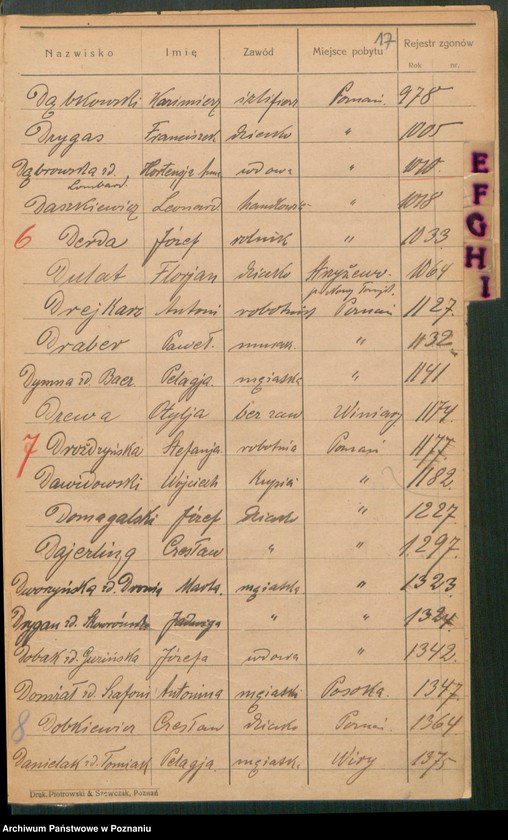 17
Nazwisko Imię Zawód Miejsce pobytu Rejestr zgonów
Rok nr.
Dąbkowski Kazimierz Poznań 978
Drygas Franciszek dziecko " 1005
Dąbrowska zd. Lombard Hortensja wdowa " 1010
Daszkiewicz Leonard " 1018
6 Derda Józef rolnik " 1033
Dulat Florjan dziecko Strzyżewo 1064
Drejkarz Antoni robotnik Poznań 1127
Draber Paweł murarz " 1132
Dymna zd. Baer Pelagja mężatka " 1141
Drewa Otylja bez zaw Winiary 1174
7 Drożdżyńska Stefanja robotnic Poznań 1177
Dawidowski Wojciech Kupiec " 1182
Domagalski Józef dziecko " 1227
Dajerling Czesław " " 1297
Dworzyńska zd. Marta mężatka " 1323
Drygan zd. Jadwiga " " 1324
Dobak zd. Guzińska Józefa wdowa " 1342
zd. Antonina mężatka 1347
8 Dobkiewicz Czesław dziecko Poznań 1364
Danielak zd. Tomiak Pelagja mężatk. Wiry 1375
E
F
G
H
I
Druk. Piotrowski & Szewczak, Poznań
Archiwum Państwowe w Poznaniu